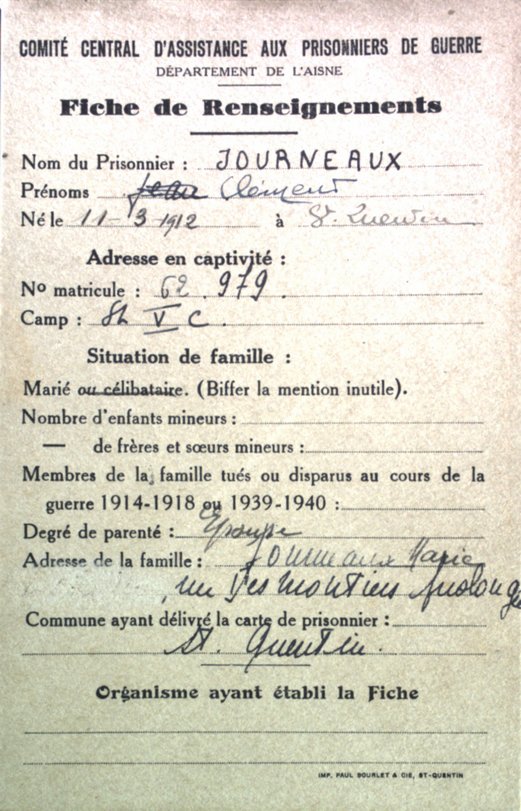 COMITÉ CENTRAL D'ASSISTANCE AUX PRISONNIERS DE GUERRE
DÉPARTEMENT DE L'AISNE
Fiche de Renseignements
Nom du Prisonnier : JOURNEAUX
Prénoms Jean Clément
Né le 11-3 1912 à St. Quentin
Adresse en captivité :
No matricule : 62.979.
Camp : St V C.
Situation de famille :
Marié ou célibataire. (Biffer la mention inutile).
Nombre d'enfants mineurs :
— de frères et sœurs mineurs :
Membres de la famille tués ou disparus au cours de la
guerre 1914-1918 ou 1939-1940 :
Degré de parenté : Epouse
Adresse de la famille : Journeaux Marie
rue prolongée
Commune ayant délivré la carte de prisonnier :
St. Quentin.
Organisme ayant établi la Fiche
IMP. PAUL BOURLET & CIE, ST-QUENTIN